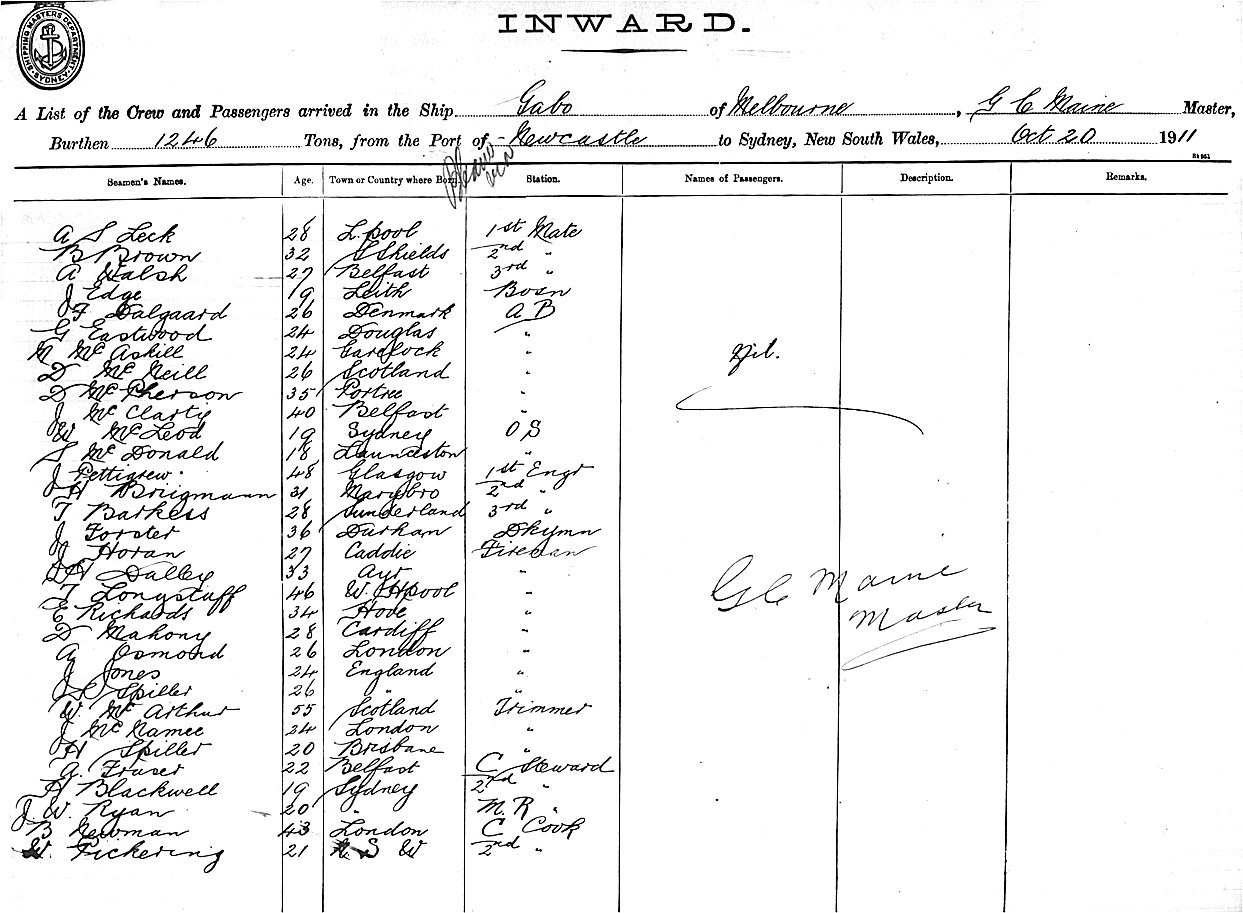 INWARD.
SHIPPING MASTERS DEPARTMENT SYDNEY
A List of the Crew and Passengers arrived in the Ship Gabo of Melbourne, G C Maine Master,
Burthen 1246 Tons, from the Port of Newcastle to Sydney, New South Wales, Oct 20 1911
Seamen's Names. Age. Town or Country where Born Station. Names of Passengers. Description. Remarks.
A S Leck 28 L.pool 1st Mate
B Brown 32 S Shields 2nd "
A Walsh 27 Belfast 3rd "
J Edge 19 Leith Bosn
F Dalgaard 26 Denmark A B
G Eastwood 24 Douglas "
N McAskill 24 Garelock "
Nil.
D McNeill 26 Scotland "
D McPherson 35 Portree "
J McClarty 40 Belfast "
W McLeod 19 Sydney O S
S McDonald 18 Launceston "
J Pettigrew 48 Glasgow 1st Engr
H Bruigmann 31 Marybro 2nd "
T Barkess 28 Sunderland 3rd "
J Forster 36 Durham Dkymn
J Horan 27 Caddie Fireman
H Dalley 33 Ayr "
T Longstaff 46 W. Hpool "
G C Maine
Master
E Richards 34 Hove "
D Mahony 28 Cardiff "
A Osmond 26 London "
J Jones 24 England "
Spiller 26 " "
W. McArthur 55 Scotland Trimmer
J McNamee 24 London "
H Spiller 20 Brisbane "
A. Fraser 22 Belfast C Steward
H Blackwell 19 Sydney 2nd "
J W Ryan 20 " M. R "
B Newman 43 London C Cook
W. Pickering 21 N S W 2nd "